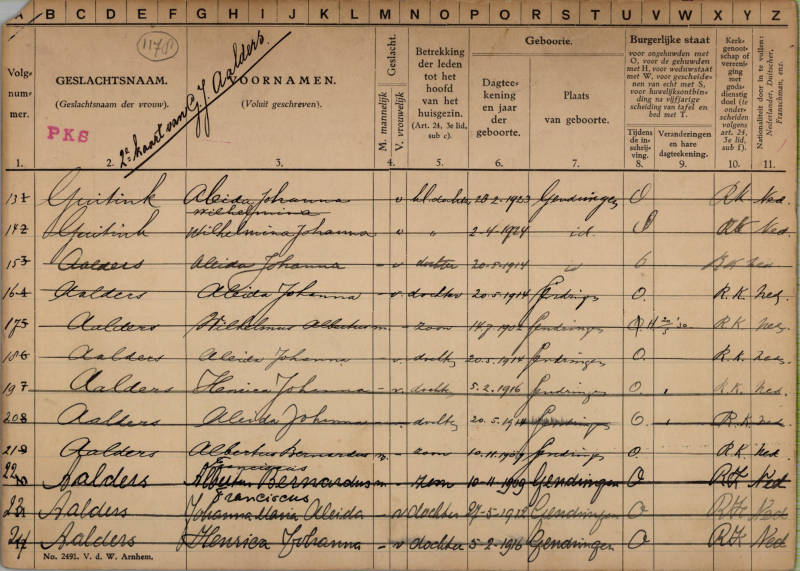 A B C D E F G H I J K L M N O P Q R S T U V W X Y Z
Volg-
num-
mer.
1.
GESLACHTSNAAM.
(Geslachtsnaam der vrouw).
PKS
2.
2e kaart van G J Aalders.
VOORNAMEN.
(Voluit geschreven).
3.
Geslacht.
M. mannelijk
V. vrouwelijk
4.
Betrekking
der leden
tot het
hoofd
van het
huisgezin.
(Art. 24, 3e lid,
sub c).
5.
Geboorte.
Dagtee-
kening
en jaar
der
geboorte.
6.
Plaats
van geboorte.
7.
Burgerlijke staat
voor ongehuwden met
O, voor de gehuwden
met H, voor weduwstaat
met W, voor gescheide-
nen van echt met S,
voor huwelijksontbin-
ding na vijfjarige
scheiding van tafel en
bed met T.
Tijdens
de in-
schrij-
ving.
8.
Veranderingen
en hare
dagteekening.
9.
Kerk-
genoot-
schap of
vereeni-
ging
met
gods-
dienstig
doel (te
onder-
scheiden
volgens
art. 24,
3e lid,
sub f).
10.
Nationaliteit door in te vullen:
Nederlander, Duitscher,
Franschman, enz.
11.
13 Guitink Aleida Johanna v kl dochter 23-2-1923 Gendringen O RK Ned.
Wilhelmina
14 Guitink Wilhelmina Johanna v " 2-4-1924 id. O RK Ned.
15 Aalders Aleida Johanna - v dochter 20-5-1914 id O RK Ned
16 Aalders Aleida Johanna - v. dochter 20-5-1914 Gendringen O. R.K. Ned.
17 Aalders Wilhelmus Albertus m. - zoon Gendringen O R.K. Ned.
18 Aalders Aleida Johanna - v. dochter 20-5-1914 Gendringen O. R.K. Ned.
19 Aalders Henrica Johanna - v. dochter 5-2-1916 Gendringen O. R.K. Ned.
20 Aalders Aleida Johanna - v. dochter 20-5-1914 Gendringen O. R.K. Ned.
21 Aalders Albertus Bernardus m. - zoon 10-11-1909 Gendringen O. R.K. Ned.
Franciscus
22 Aalders Albertus Bernardus m - zoon 10-11-1909 Gendringen O RK Ned
Franciscus
23 Aalders Johanna Maria Aleida - v dochter 27-5-1912 Gendringen O RK Ned
24 Aalders Henrica Johanna - v dochter 5-2-1916 Gendringen O RK Ned
No. 2491. V. d. W. Arnhem.